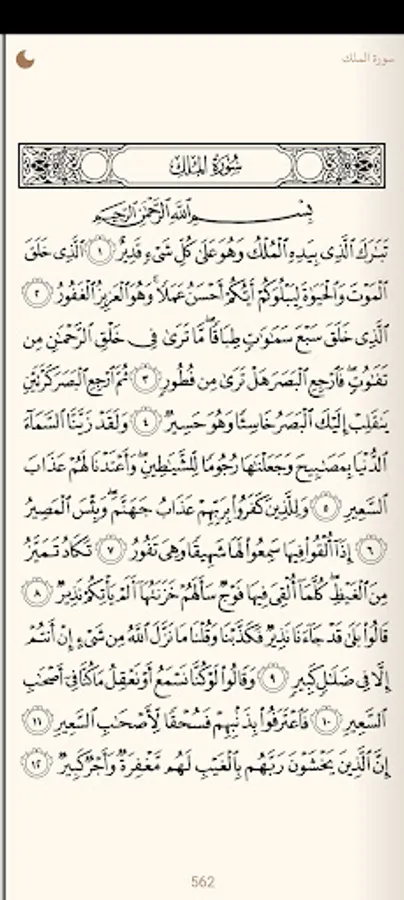 سورة الملك
سُورَةُ المُلۡكِ
بِسۡمِ ٱللَّهِ ٱلرَّحۡمَٰنِ ٱلرَّحِيمِ
تَبَٰرَكَ ٱلَّذِي بِيَدِهِ ٱلۡمُلۡكُ وَهُوَ عَلَىٰ كُلِّ شَيۡءٖ قَدِيرٌ ١ ٱلَّذِي خَلَقَ
ٱلۡمَوۡتَ وَٱلۡحَيَوٰةَ لِيَبۡلُوَكُمۡ أَيُّكُمۡ أَحۡسَنُ عَمَلٗاۚ وَهُوَ ٱلۡعَزِيزُ ٱلۡغَفُورُ ٢
ٱلَّذِي خَلَقَ سَبۡعَ سَمَٰوَٰتٖ طِبَاقٗاۖ مَّا تَرَىٰ فِي خَلۡقِ ٱلرَّحۡمَٰنِ مِن
تَفَٰوُتٖۖ فَٱرۡجِعِ ٱلۡبَصَرَ هَلۡ تَرَىٰ مِن فُطُورٖ ٣ ثُمَّ ٱرۡجِعِ ٱلۡبَصَرَ كَرَّتَيۡنِ
يَنقَلِبۡ إِلَيۡكَ ٱلۡبَصَرُ خَاسِئٗا وَهُوَ حَسِيرٞ ٤ وَلَقَدۡ زَيَّنَّا ٱلسَّمَآءَ
ٱلدُّنۡيَا بِمَصَٰبِيحَ وَجَعَلۡنَٰهَا رُجُومٗا لِّلشَّيَٰطِينِۖ وَأَعۡتَدۡنَا لَهُمۡ عَذَابَ
ٱلسَّعِيرِ ٥ وَلِلَّذِينَ كَفَرُواْ بِرَبِّهِمۡ عَذَابُ جَهَنَّمَۖ وَبِئۡسَ ٱلۡمَصِيرُ
٦ إِذَآ أُلۡقُواْ فِيهَا سَمِعُواْ لَهَا شَهِيقٗا وَهِيَ تَفُورُ ٧ تَكَادُ تَمَيَّزُ
مِنَ ٱلۡغَيۡظِۖ كُلَّمَآ أُلۡقِيَ فِيهَا فَوۡجٞ سَأَلَهُمۡ خَزَنَتُهَآ أَلَمۡ يَأۡتِكُمۡ نَذِيرٞ ٨
قَالُواْ بَلَىٰ قَدۡ جَآءَنَا نَذِيرٞ فَكَذَّبۡنَا وَقُلۡنَا مَا نَزَّلَ ٱللَّهُ مِن شَيۡءٍ إِنۡ أَنتُمۡ
إِلَّا فِي ضَلَٰلٖ كَبِيرٖ ٩ وَقَالُواْ لَوۡ كُنَّا نَسۡمَعُ أَوۡ نَعۡقِلُ مَا كُنَّا فِيٓ أَصۡحَٰبِ
ٱلسَّعِيرِ ١٠ فَٱعۡتَرَفُواْ بِذَنۢبِهِمۡ فَسُحۡقٗا لِّأَصۡحَٰبِ ٱلسَّعِيرِ ١١
إِنَّ ٱلَّذِينَ يَخۡشَوۡنَ رَبَّهُم بِٱلۡغَيۡبِ لَهُم مَّغۡفِرَةٞ وَأَجۡرٞ كَبِيرٞ ١٢
562